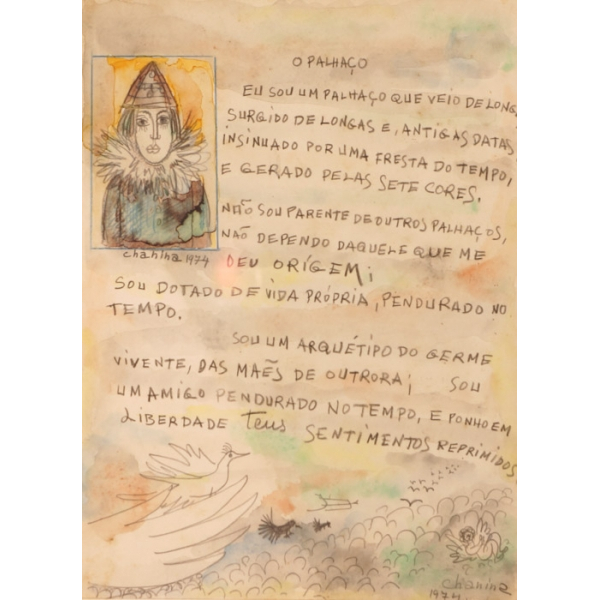 O PALHAÇO
EU SOU UM PALHAÇO QUE VEIO DE LONGE
SURGIDO DE LONGAS E, ANTIGAS DATAS
INSINUADO POR UMA FRESTA DO TEMPO,
E GERADO PELAS SETE CORES.
NÃO SOU PARENTE DE OUTROS PALHAÇOS,
NÃO DEPENDO DAQUELE QUE ME
chanina 1974 DEU ORÍGEM;
SOU DOTADO DE VIDA PRÓPRIA, PENDURADO NO
TEMPO.
SOU UM ARQUÉTIPO DO GERME
VIVENTE, DAS MAẼS DE OUTRORA; SOU
UM AMIGO PENDURADO NO TEMPO, E PONHO EM
LIBERDADE TEUS SENTIMENTOS REPRIMIDOS
chanina
1974